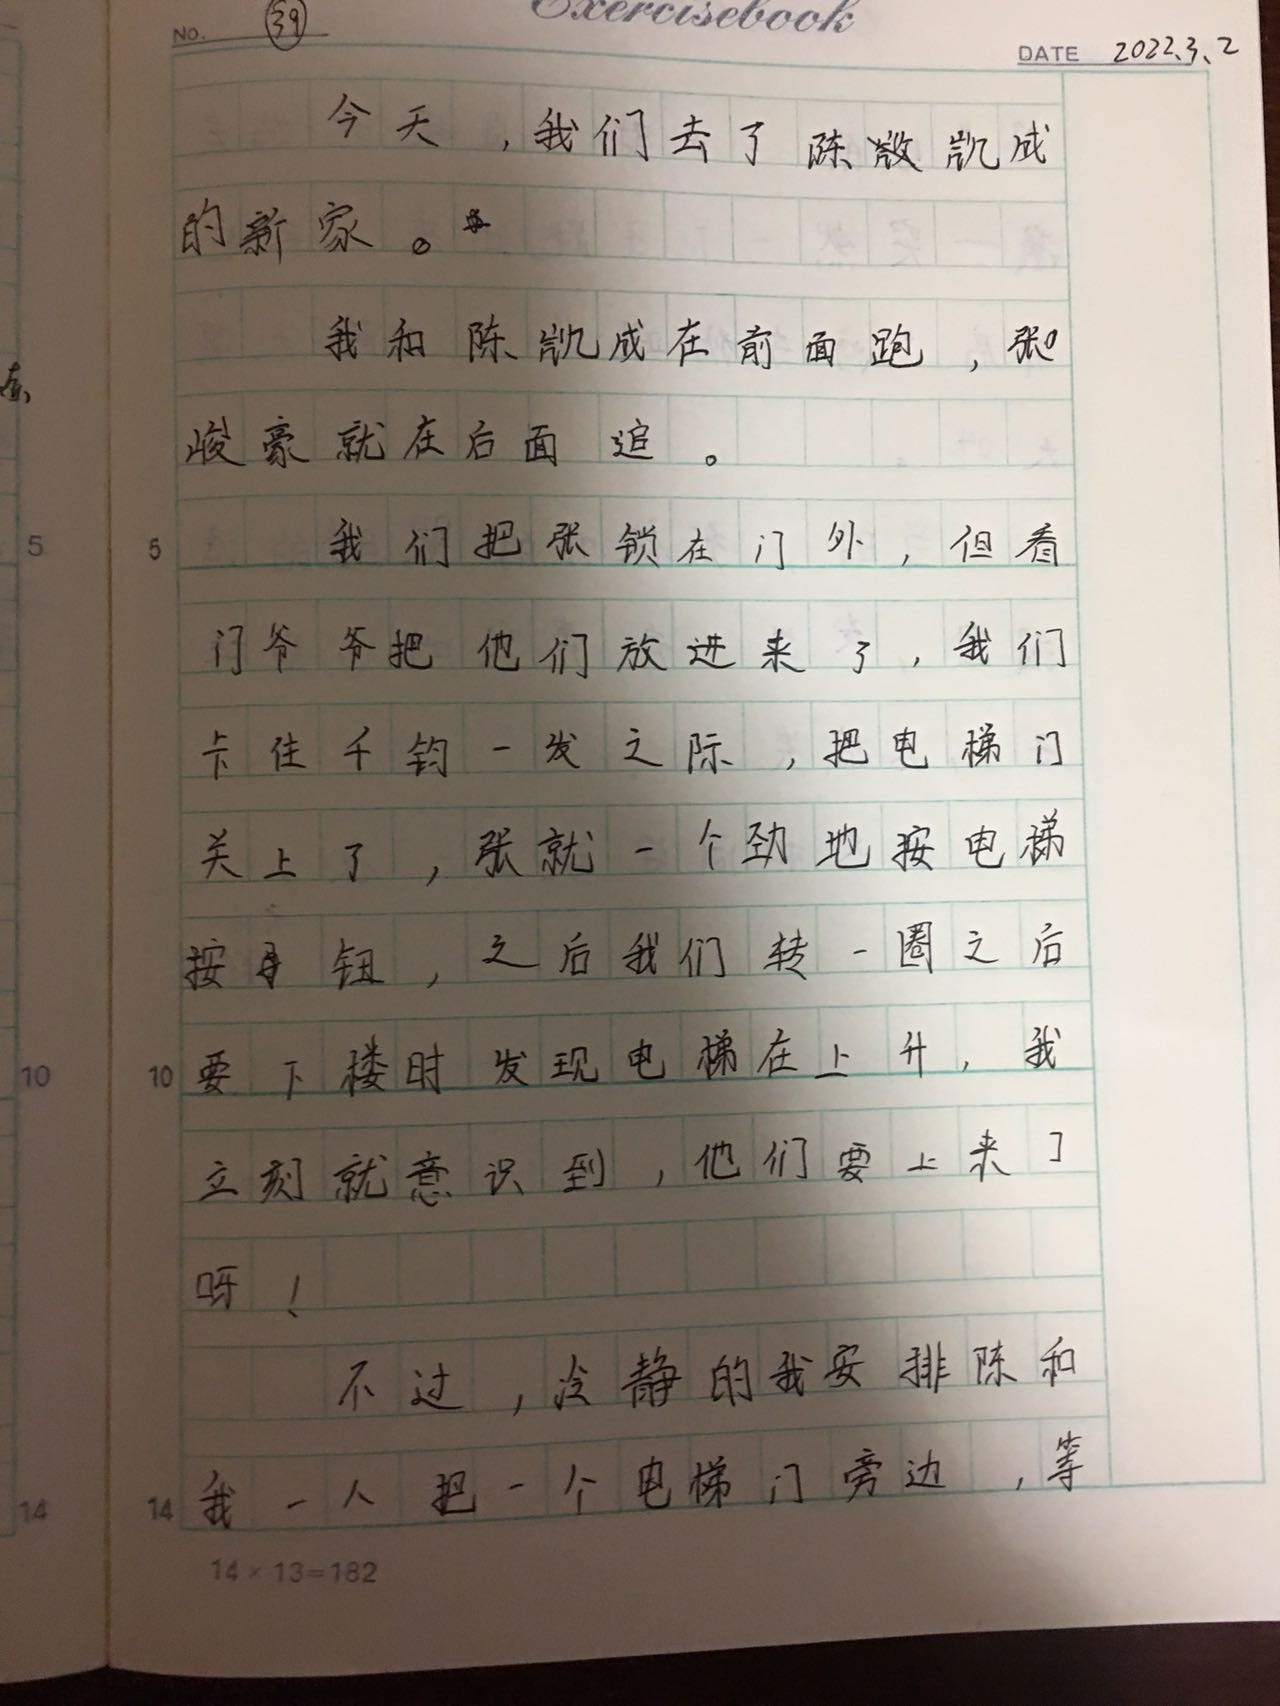 Exercisebook
NO. 39
DATE 2022.3.2
今天，我们去了陈凯成
的新家。
我和陈凯成在前面跑，张
峻豪就在后面追。
5 5 我们把张锁在门外，但看
门爷爷把他们放进来了，我们
卡住千钧一发之际，把电梯门
关上了，张就一个劲地按电梯
按钮，之后我们转一圈之后
10 10 要下楼时发现电梯在上升，我
立刻就意识到，他们要上来了
呀！
不过，冷静的我安排陈和
14 14 我一人把一个电梯门旁边，等
14×13=182